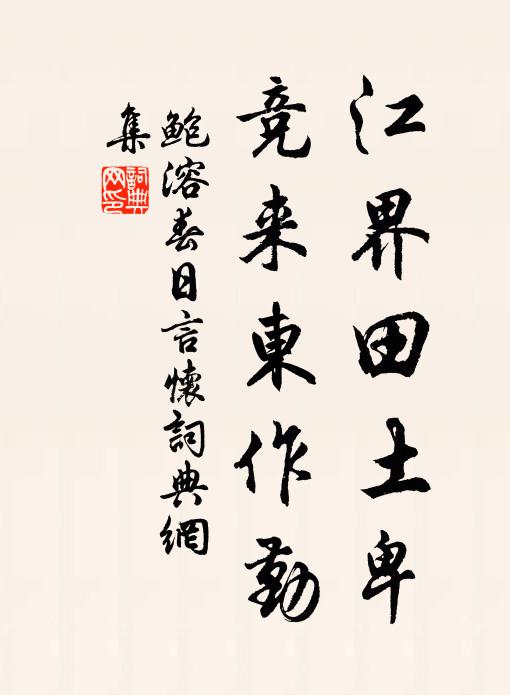 江界田土卑
竞来東作勤
鲍溶春日言懷詞典網
集
詞典網印